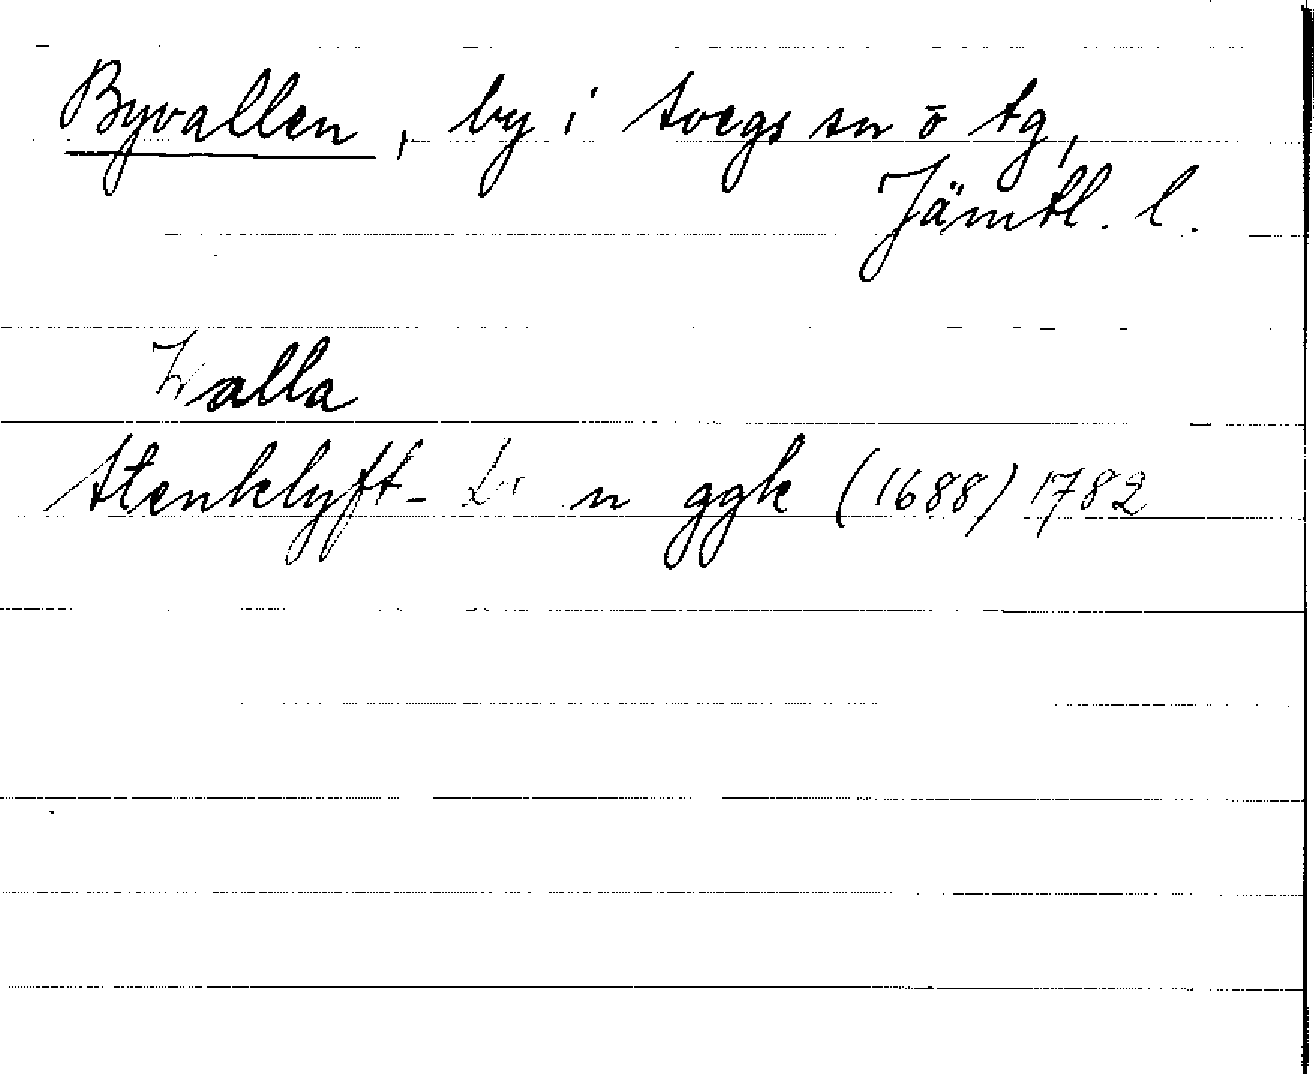 Byvallen, by i Svegs sn o tg,
Jämtl. l.
Walla
Stenklyft- n ggk (1688) 1782